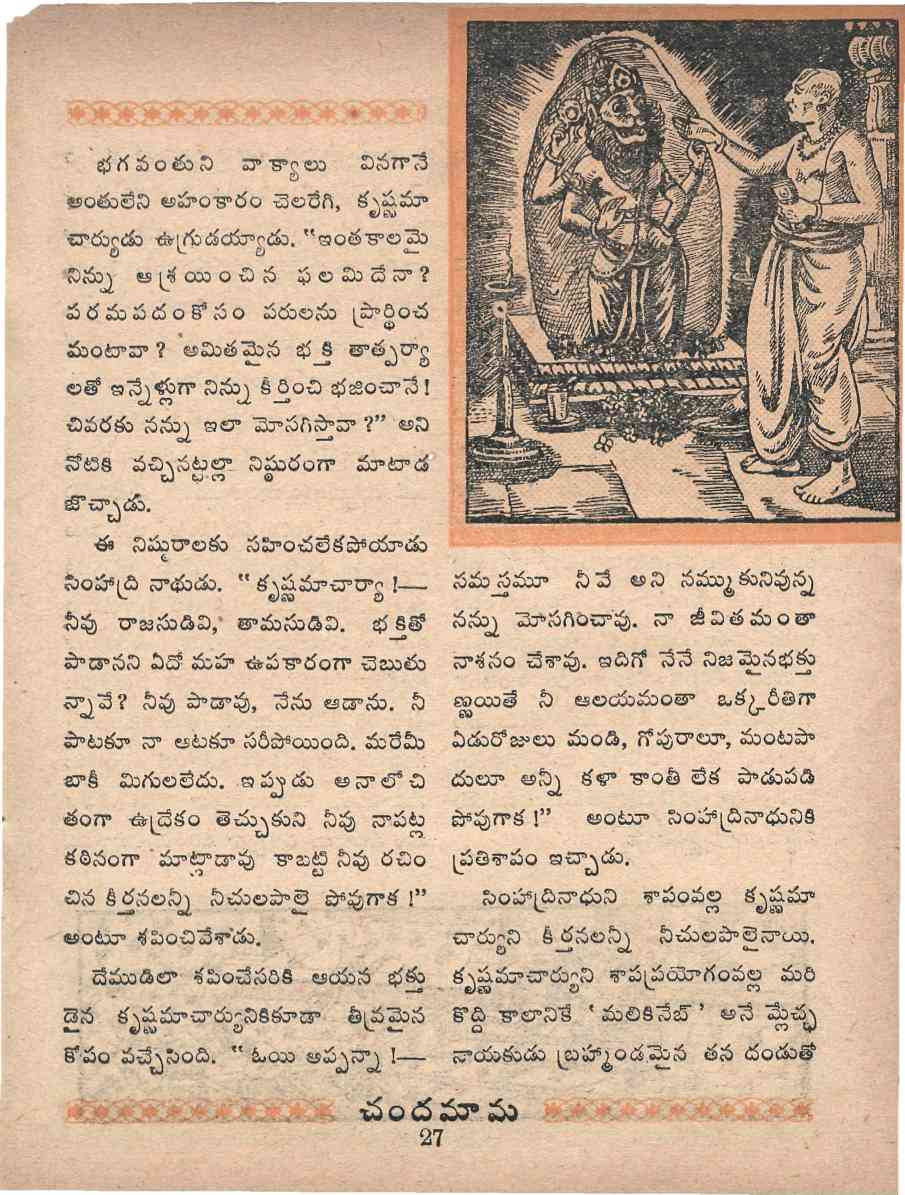 భగవంతుని వాక్యాలు వినగానే
అంతులేని అహంకారం చెలరేగి, కృష్ణమా
చార్యుడు ఉగ్రుడయ్యాడు. “ఇంతకాలమై
నిన్ను ఆశ్రయించిన ఫలమిదేనా?
పరమపదంకోసం పరులను ప్రార్థించ
మంటావా? అమితమైన భక్తి తాత్పర్యా
లతో ఇన్నేళ్లుగా నిన్ను కీర్తించి భజించానే!
చివరకు నన్ను ఇలా మోసగిస్తావా?” అని
నోటికి వచ్చినట్టల్లా నిష్ఠురంగా మాటాడ
జొచ్చాడు.
ఈ నిష్ఠురాలకు సహించలేకపోయాడు
సింహాద్రి నాథుడు. “కృష్ణమాచార్యా!—
నీవు రాజసుడివి, తామసుడివి. భక్తితో
పాడానని ఏదో మహ ఉపకారంగా చెబుతు
న్నావే? నీవు పాడావు, నేను ఆడాను. నీ
పాటకూ నా ఆటకూ సరీపోయింది. మరేమీ
బాకీ మిగులలేదు. ఇప్పుడు అనాలోచి
తంగా ఉద్రేకం తెచ్చుకుని నీవు నాపట్ల
కఠినంగా మాట్లాడావు కాబట్టి నీవు రచిం
చిన కీర్తనలన్నీ నీచులపాలై పోవుగాక!”
అంటూ శపించివేశాడు.
దేముడిలా శపించేసరికి ఆయన భక్తు
డైన కృష్ణమాచార్యునికికూడా తీవ్రమైన
కోపం వచ్చేసింది. “ఓయి అప్పన్నా!—
సమస్తమూ నీవే అని నమ్ముకునివున్న
నన్ను మోసగించావు. నా జీవితమంతా
నాశనం చేశావు. ఇదిగో నేనే నిజమైనభక్తు
ణ్ణయితే నీ ఆలయమంతా ఒక్కరీతిగా
ఏడురోజులు మండి, గోపురాలూ, మంటపా
దులూ అన్నీ కళా కాంతీ లేక పాడుపడి
పోవుగాక!” అంటూ సింహాద్రినాధునికి
ప్రతిశాపం ఇచ్చాడు.
సింహాద్రినాధుని శాపంవల్ల కృష్ణమా
చార్యుని కీర్తనలన్నీ నీచులపాలైనాయి.
కృష్ణమాచార్యుని శాపప్రయోగంవల్ల మరి
కొద్ది కాలానికే ‘మలికినేబ్’ అనే మ్లేచ్ఛ
నాయకుడు బ్రహ్మాండమైన తన దండుతో
చందమామ
27